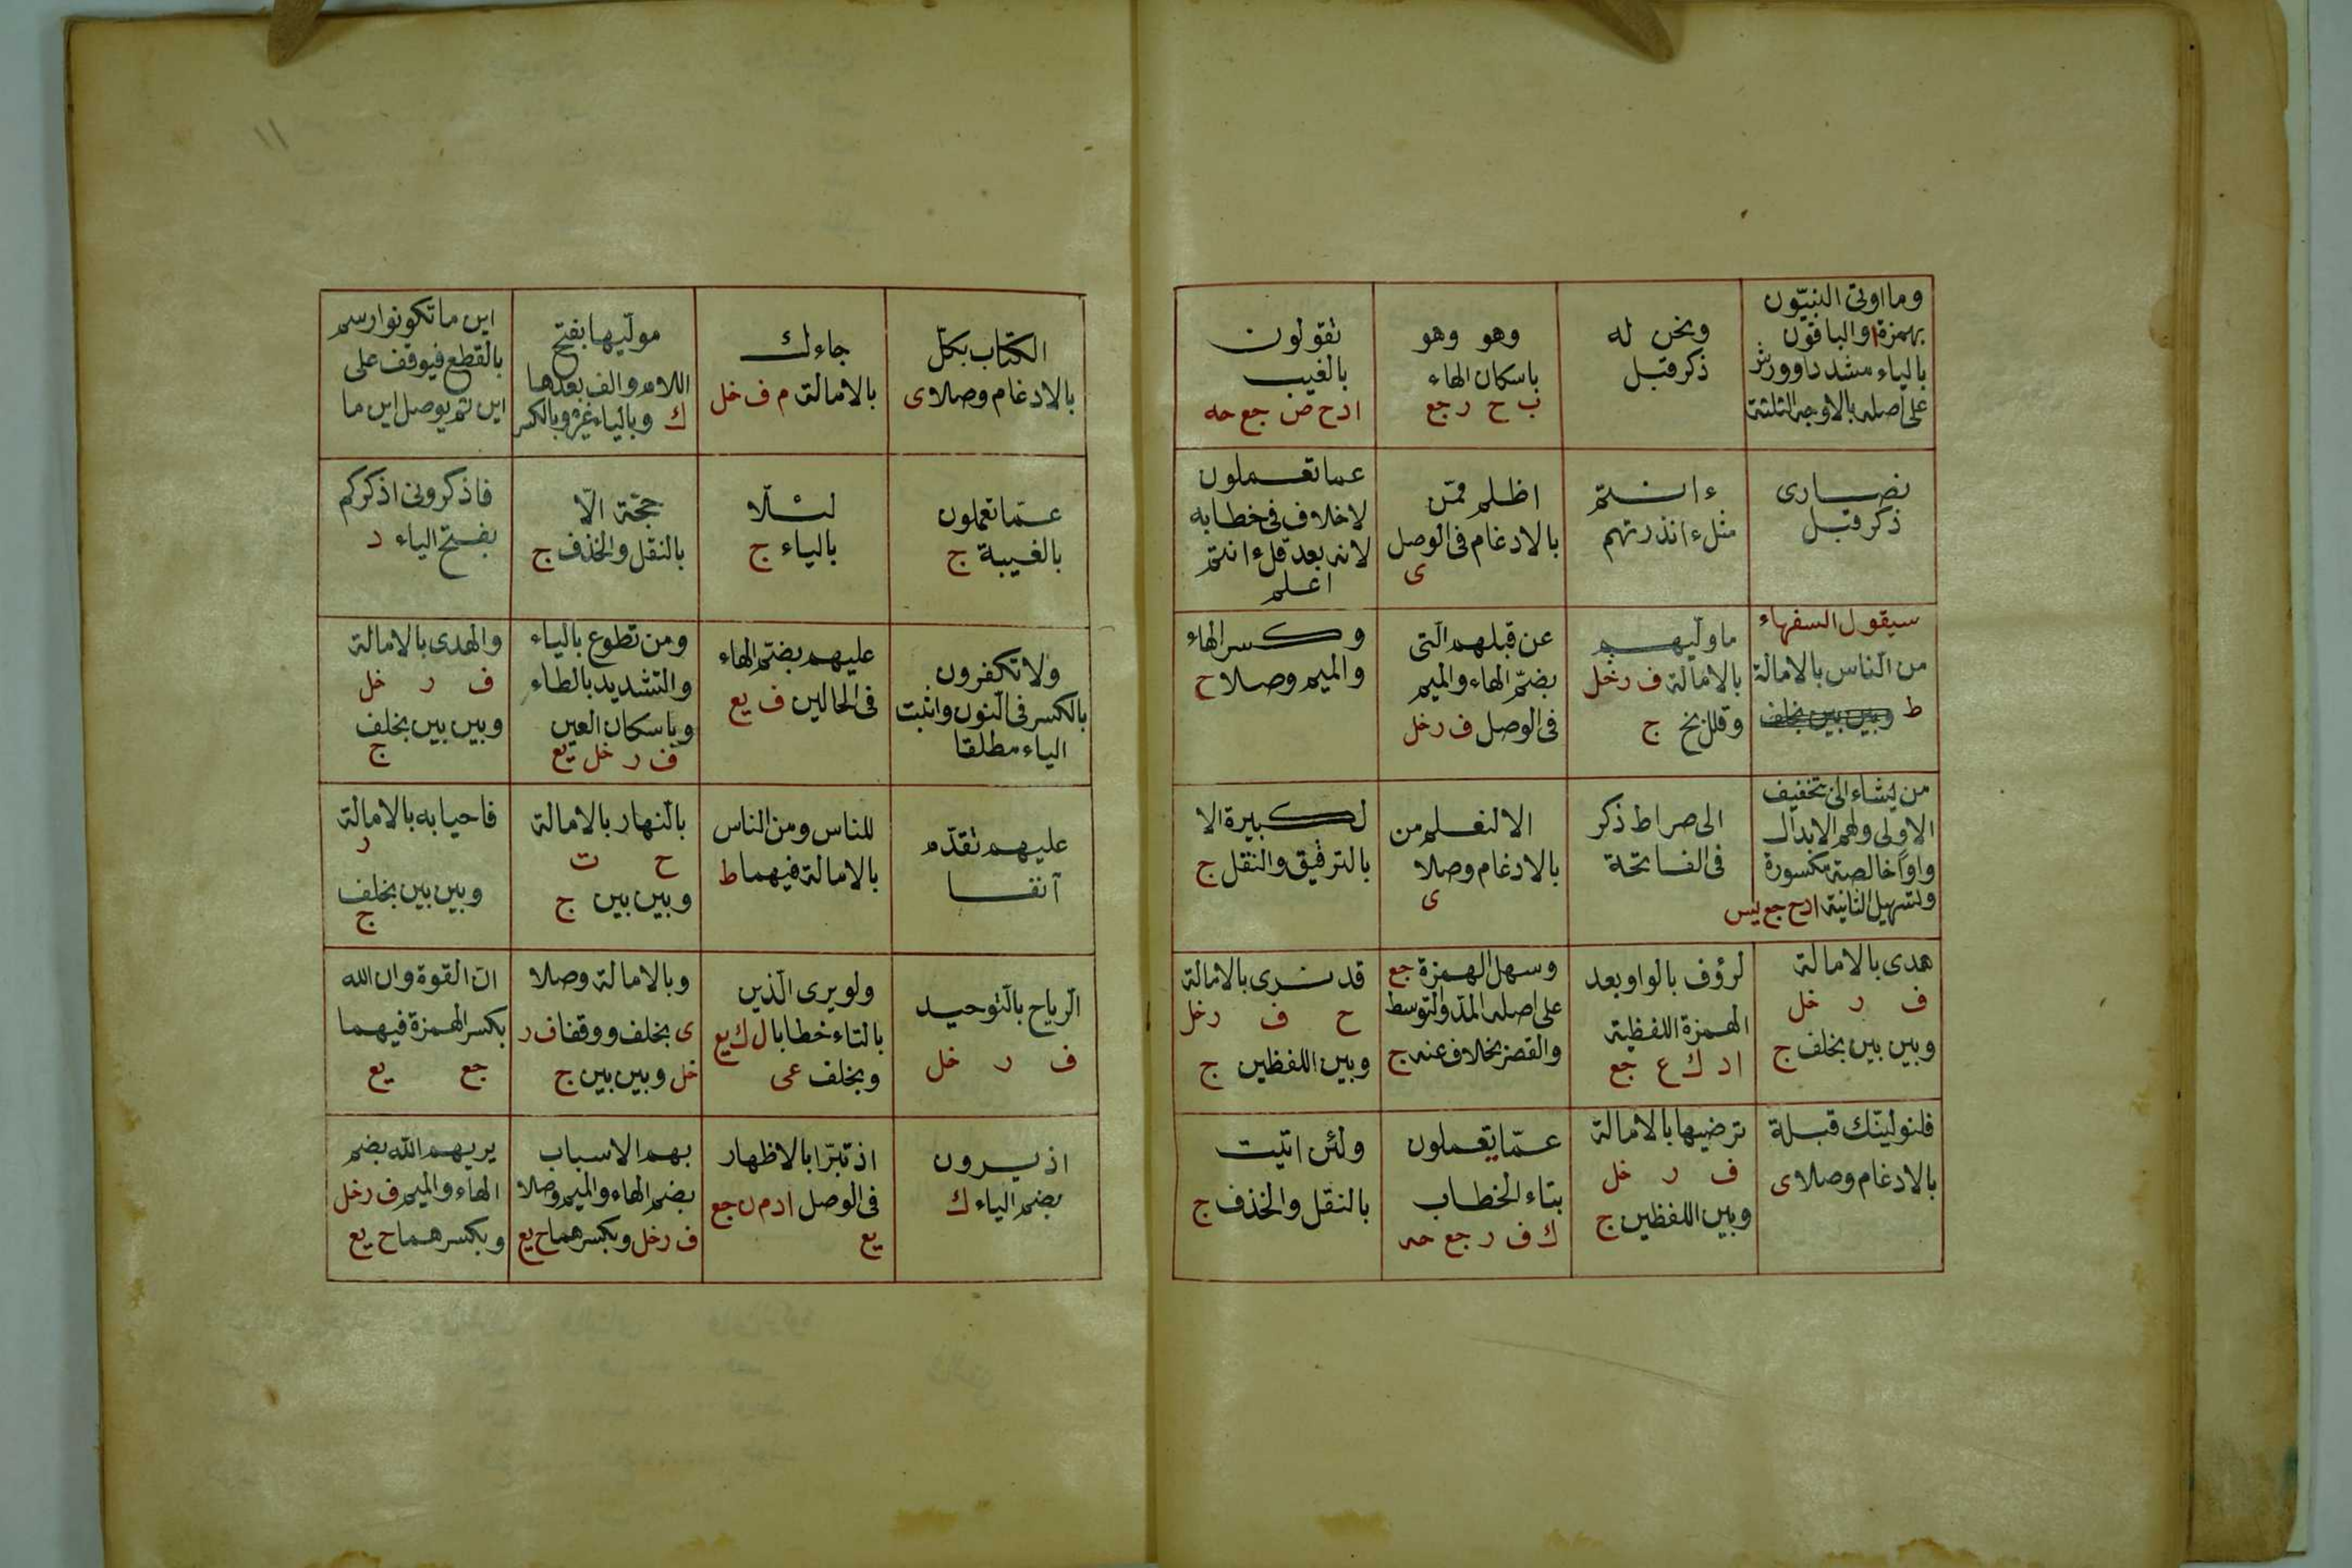 وما اوتى النبيّون
بهمزة ا والباقون
بالياء مشددا وورش
على اصله بالاوجه الثلثة
ونحن له
ذكر قبل
وهو وهو
باسكان الهاء
ب ح ر جع
تقولون
بالغيب
ا د ح ص جع حه
نصارى
ذكر قبل
ءانتم
مثل ءانذرتهم
اظلم ممّن
بالادغام فى الوصل
ى
عما تعملون
لا خلاف فى خطابه
لانه بعد قل ءانتم
اعلم
سيقول السفهاء
من النّاس بالامالة
ط وبين بين بخلف
ما ولّيهم
بالامالة ف ر خل
وقلل بخ ج
عن قبلهم الّتى
بضمّ الهاء والميم
فى الوصل ف ر خل
وكسر الهاء
والميم وصلا ح
من يشاء الى بتخفيف
الاولى ولهم الابدال
واوا خالصة مكسورة
وتسهيل الثانية ا د ح جع يس
الى صراط ذكر
فى الفاتحة
الا لنعلم من
بالادغام وصلا
ى
لكبيرة الا
بالترقيق والنقل ج
هدى بالامالة
ف ر خل
وبين بين بخلف ج
لرؤف بالواو بعد
الهمزة اللفظية
ا د ك ع جع
وسهل الهمزة جع
على اصله المدّ والتوسط
والقصر بخلاف عنه ج
قد نرى بالامالة
ح ف ر خل
وبين اللفظين ج
فلنولينّك قبلة
بالادغام وصلا ى
ترضيها بالامالة
ف ر خل
وبين اللفظين ج
عمّا يعملون
بتاء الخطاب
ك ف ر جع حه
ولئن اتيت
بالنقل والحذف ج
١١
الكتاب بكلّ
بالادغام وصلا ى
جاءك
بالامالة م ف خل
مولّيها بفتح
اللام والف بعدها
ك وبالياء غيره وبالكسر
اين ما تكونوا رسم
بالقطع فيوقف على
اين ثم يوصل اين ما
عمّا تعملون
بالغيبة ح
لئلّا
بالياء ج
حجّة الّا
بالنقل والحذف ج
فاذكرونى اذكركم
بفتح الياء د
ولا تكفرون
بالكسر فى النون واثبت
الياء مطلقا
عليهم بضمّ الهاء
فى الحالين ف يع
ومن تطوع بالياء
والتشديد بالطاء
وباسكان العين
ف ر خل يع
والهدى بالامالة
ف ر خل
وبين بين بخلف
ج
عليهم تقدّم
آنفا
للناس ومن الناس
بالامالة فيهما ط
بالنهار بالامالة
ح ت
وبين بين ج
فاحيا به بالامالة
ر
وبين بين بخلف
ج
الرياح بالتوحيد
ف ر خل
ولو يرى الّذين
بالتاء خطابا ل ك يع
وبخلف عى
وبالامالة وصلا
ى بخلف ووقفا ف ر
خل وبين بين ج
انّ القوة وان الله
بكسر الهمزة فيهما
جع يع
اذ يرون
بضم الياء ك
اذ تبرّا بالاظهار
فى الوصل ا د م ن جع
يع
بهم الاسباب
بضم الهاء والميم وصلا
ف ر خل وبكسرهما ح يع
يريهم الله بضم
الهاء والميم ف ر خل
وبكسرهما ح يع